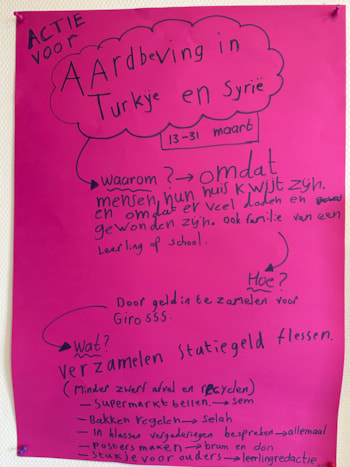 ACTIE
VOOR
AARdbeving in
Turkije en Syrië
13-31 maart
Waarom? → omdat
mensen hun huis kwijt zijn.
en omdat er veel doden en
gewonden zijn. ook familie van een
leerling of school.
Hoe?
Door geld in te zamelen voor
Giro 555.
Wat?
verzamelen statiegeld flessen.
(Minder zwerf afval en recyclen)
- Supermarkt bellen. → sem
- Bakken regelen → selah
- In klassen vergaderingen bespreken → allemaal
- Posters maken → bram en don
- Stukje voor ouders → leerlingredactie